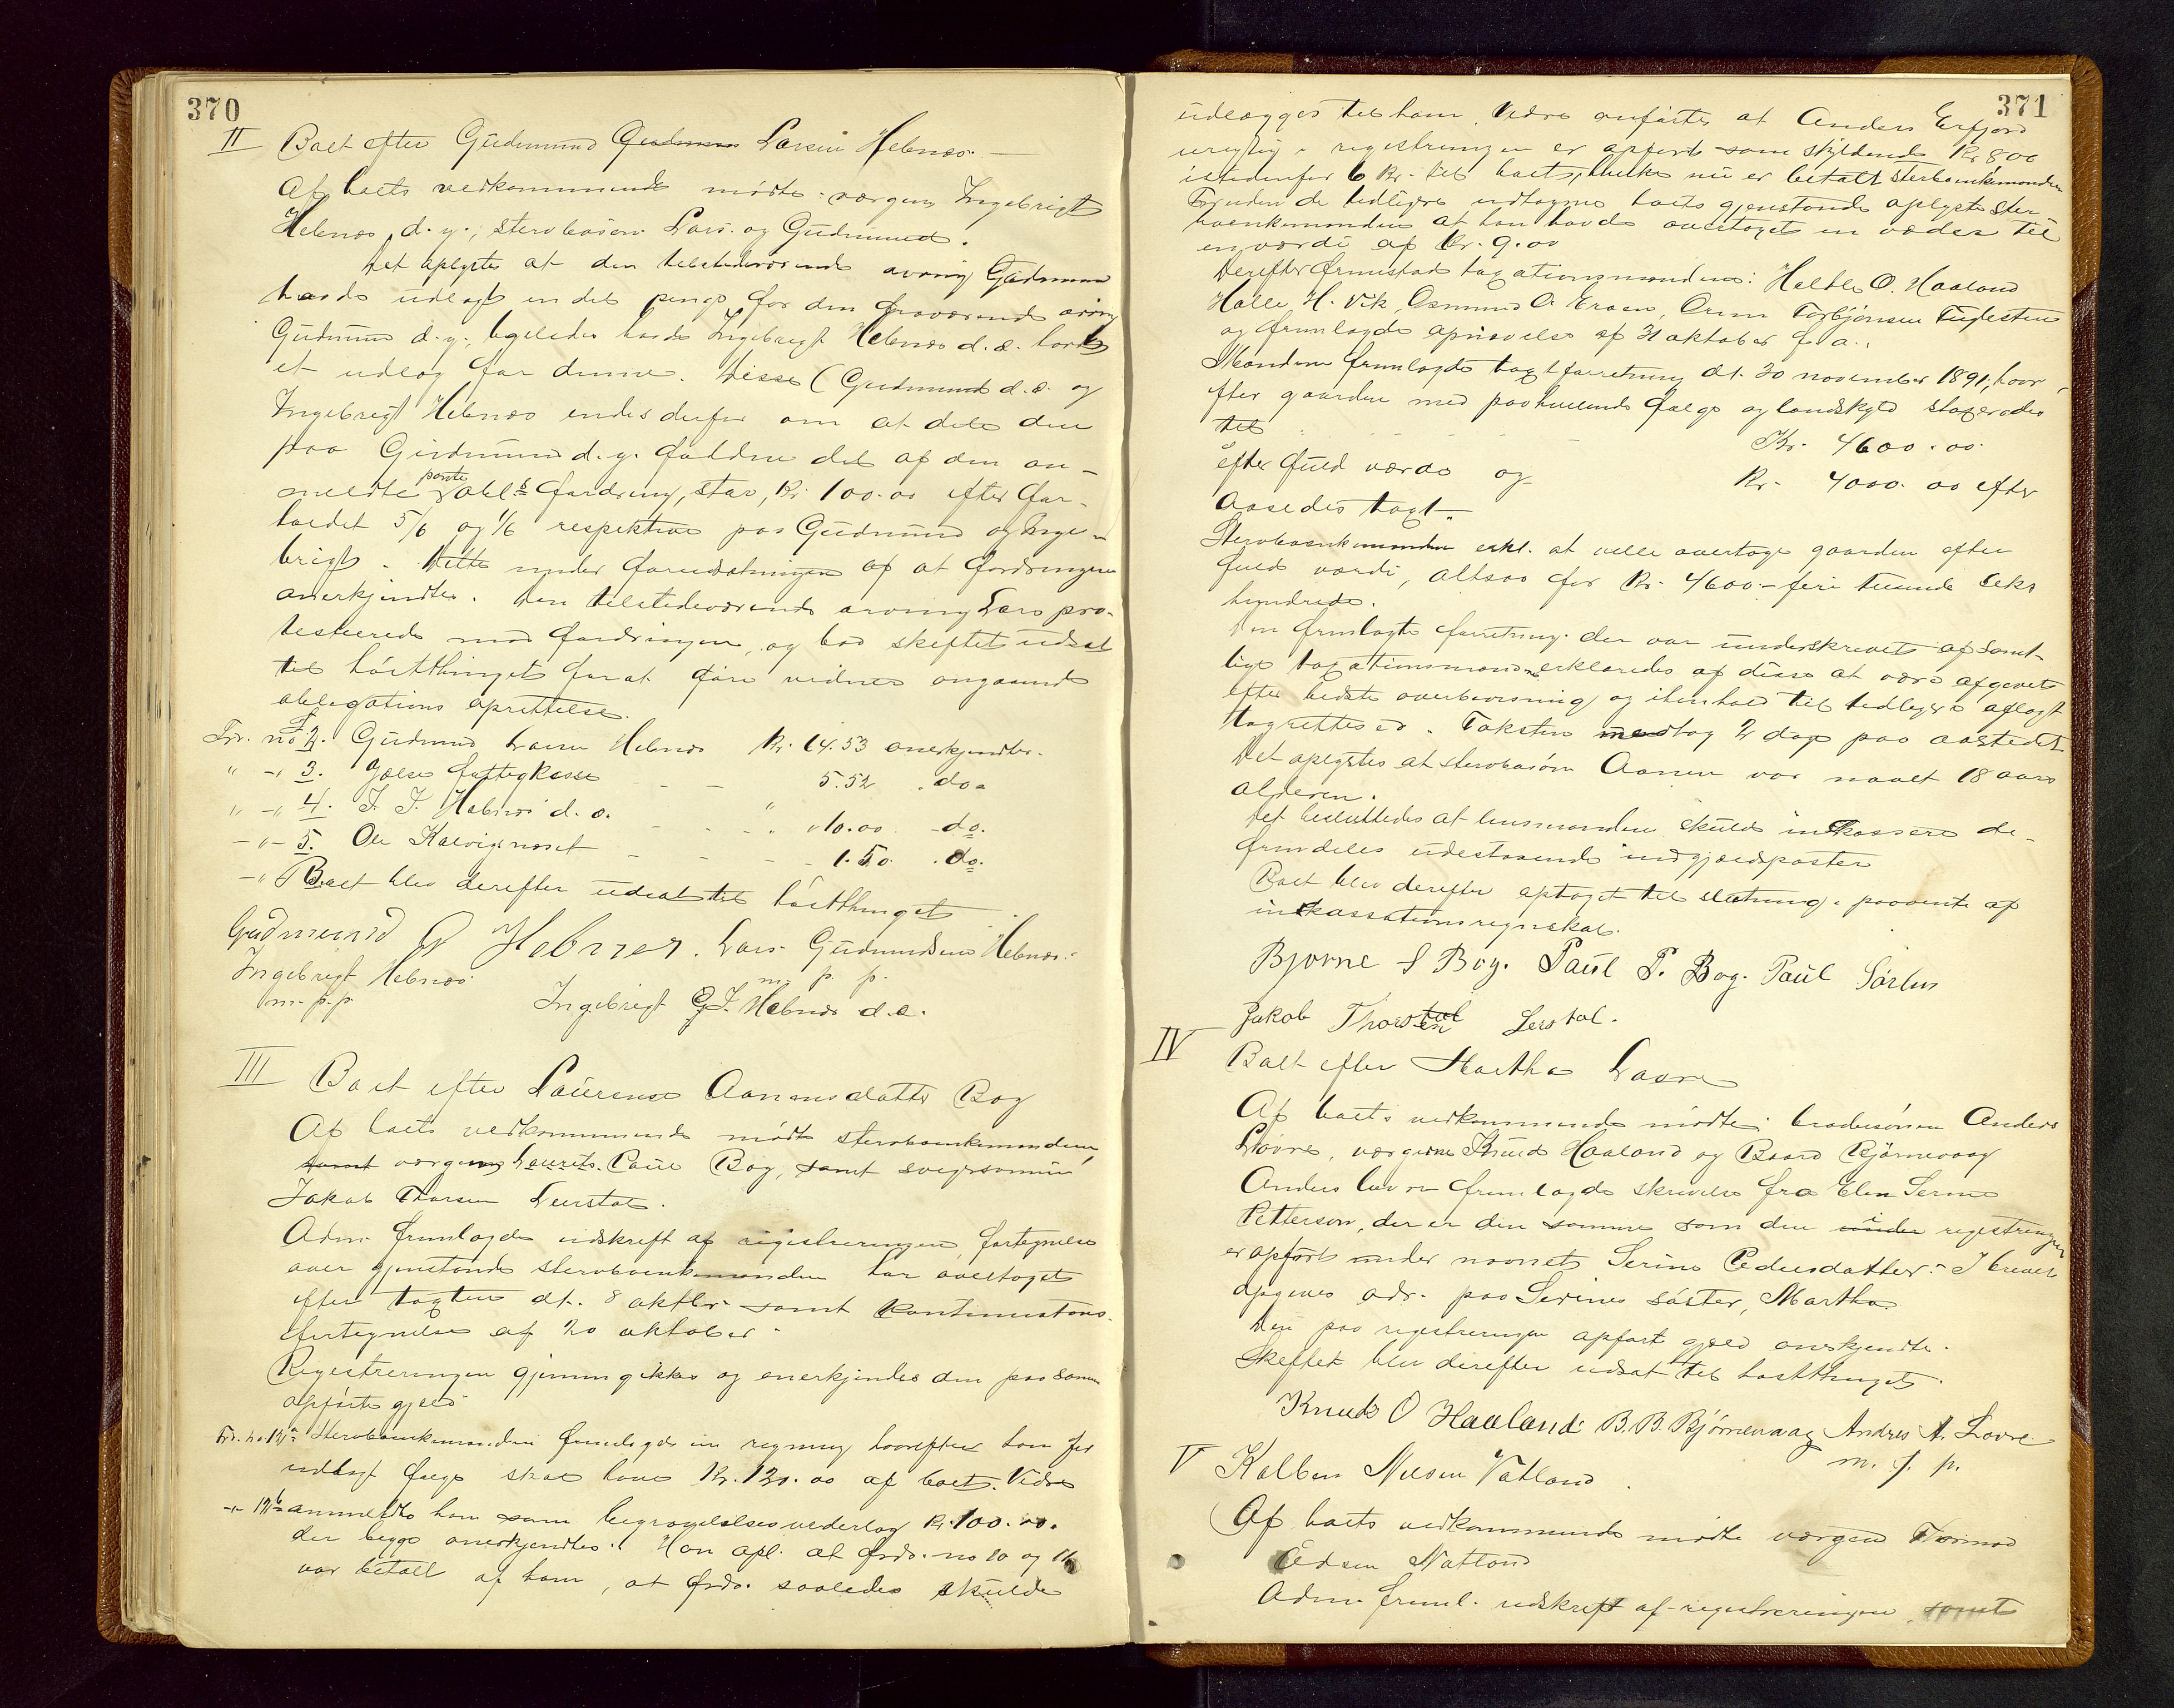 370
II Boet efter Gudmund Gudmun Larsen Hebnes. —
Af boets vedkommende mødte: værgen, Ingebrigt
Hebnes d. y., stervbosøn Lars og Gudmund.
Det oplystes at den tilstedeværende arving Gudmun
havde udlagt en del penge for den fraværende arving
Gudmund d. y. ligeledes havde Ingebrigt Hebnes d. æ. havt
et udlæg for denne. Disse (Gudmund d. æ. og
Ingebrigt Hebnes endes derfor om at dele den
paa Gudmund d. y. faldne del af den an-
meldte pante obl.s fordring, stor, Kr. 100.00 efter for-
holdet 5/6 og 1/6 respektive paa Gudmund og Inge-
brigt. Dette under forudsætningen af at fordringen
anerkjendtes. Den tilstedeværende arving Lars pro-
testerede mod fordringen, og bad skiftet udsat
til høstthinget for at føre vidner angaaende
obligations oprettelse.
Frd. no 2. Gudmund Larsen Hebnes Kr. 14.53 anerkjendtes.
" -" 3. Jelse fattigkasse - - 5.52 . do.
" -" 4. I. I. Hebnes d. æ. - - - " " 10.00 - do.
-"- 5. Ole Kalvignæset - - - - 1.50. . do.
-" Boet blev derefter udsat til høstthinget
Gudmund G Hebnes. Lars Gudmundsen Hebnes.
m. p. p.
Ingebrigt Hebnes
m. p. p. Ingebrigt G. I. Hebnes d. e.
III Boet efter Laurense Aanensdatter Bog
Af boets vedkommende mødte stervboenkemanden,
samt værgen, Laurits Paul Bog, samt svigersønnen
Jakob Thorsen Leirstol.
Adm. fremlagde udskrift af registreringen, fortegnelse
over gjenstande stervboenkemanden har overtaget
efter taxten dt. 8 oktbr. samt kontinuations-
fortegnelse af 20 oktober.
Registreringen gjennemgikkes og anerkjendes den paa samme
opførte gjæld.
Frd. no 12a Stervboenkemanden fremlagde en regning hvorefter han for
udlagt følge skal have Kr. 120.00 af boet. Videre
-"- 12b anmeldte han som begravelsesvederlag Kr. 100.00.
der begge anerkjendtes. Han opl. at frdr. no 10 og 11
var betalt af ham, at frdr. saaledes skulde
371
udlægges til ham. Videre anførtes at Anders Erfjord
urigtig i registreringen er opført som skyldende Kr 800
istedenfor 6 kr. til boet, hvilke nu er betalt stervboenkemanden
Foruden de tidligere udtagne boets gjenstande oplyste ster-
boenkemanden at han havde overtaget en væder til
en værdi af Kr. 9.00
Derefter fremstod taxationsmændene: Helle O. Haaland
Halle H. Vik, Osmund O. Eraen, Orm Torbjørnsen Fuglesteen
og fremlagde opnævnelse af 31 oktober f. a.
Mændene fremlagde taxtforretning dt. 30 november 1891, hvor-
efter gaarden med paahvilende følge og landskyld staxeredes
til - - - - - Kr. 4600.00
efter fuld værdi og Kr. 4000.00 efter
aasædes taxt.
Stervboenkemanden erkl. at ville overtage gaarden efter
fuld værdi, altsaa for Kr. 4600.- fire tusende seks
hundrede.
Den fremlagte forretning der var underskrevet af samt-
lige taxationsmænd erklæredes af disse at være afgivet
efter bedste overbevisning og i henhold til tidligere aflagt
laugrettesed. Taksten medtog 2 dage paa aastedet
Det oplystes at stervbosøn Aanen var naaet 18 aars
alderen.
Det besluttedes at lensmanden skulde indkassere de
fremdeles udestaaende indgjældsposter
Boet blev derefter optaget til slutning i paavente af
inkassationsregnskab.
Bjørne S Bog. Paul P. Bog. Paul Sørhus
Jakob Thorsen Lerstol.
IV Boet efter Martha Lovre
Af boets vedkommende mødte: brodersønnen Anders
Lovre, værgerne Knud Haaland og Baard Bjørnevaag
Anders Lovre fremlagde skrivelse fra Elen Serine
Petterson, der er den samme som den under i registreringen
er opført under navnet Serine Pedersdatter. I brevet
opgives adr. paa Serines søster, Martha
Den paa registreringen opført gjæld anerkjendtes.
Skiftet blev derefter udsat til høstthinget.
Knud O Haaland B. B. Bjørnevaag Andres A. Lovre
m. f. p.
V Kolben Nilsen Vatland
Af boets vedkommende mødte værgen Tormod
Edsen Natland
Adm. freml. udskrift af registreringen, samt